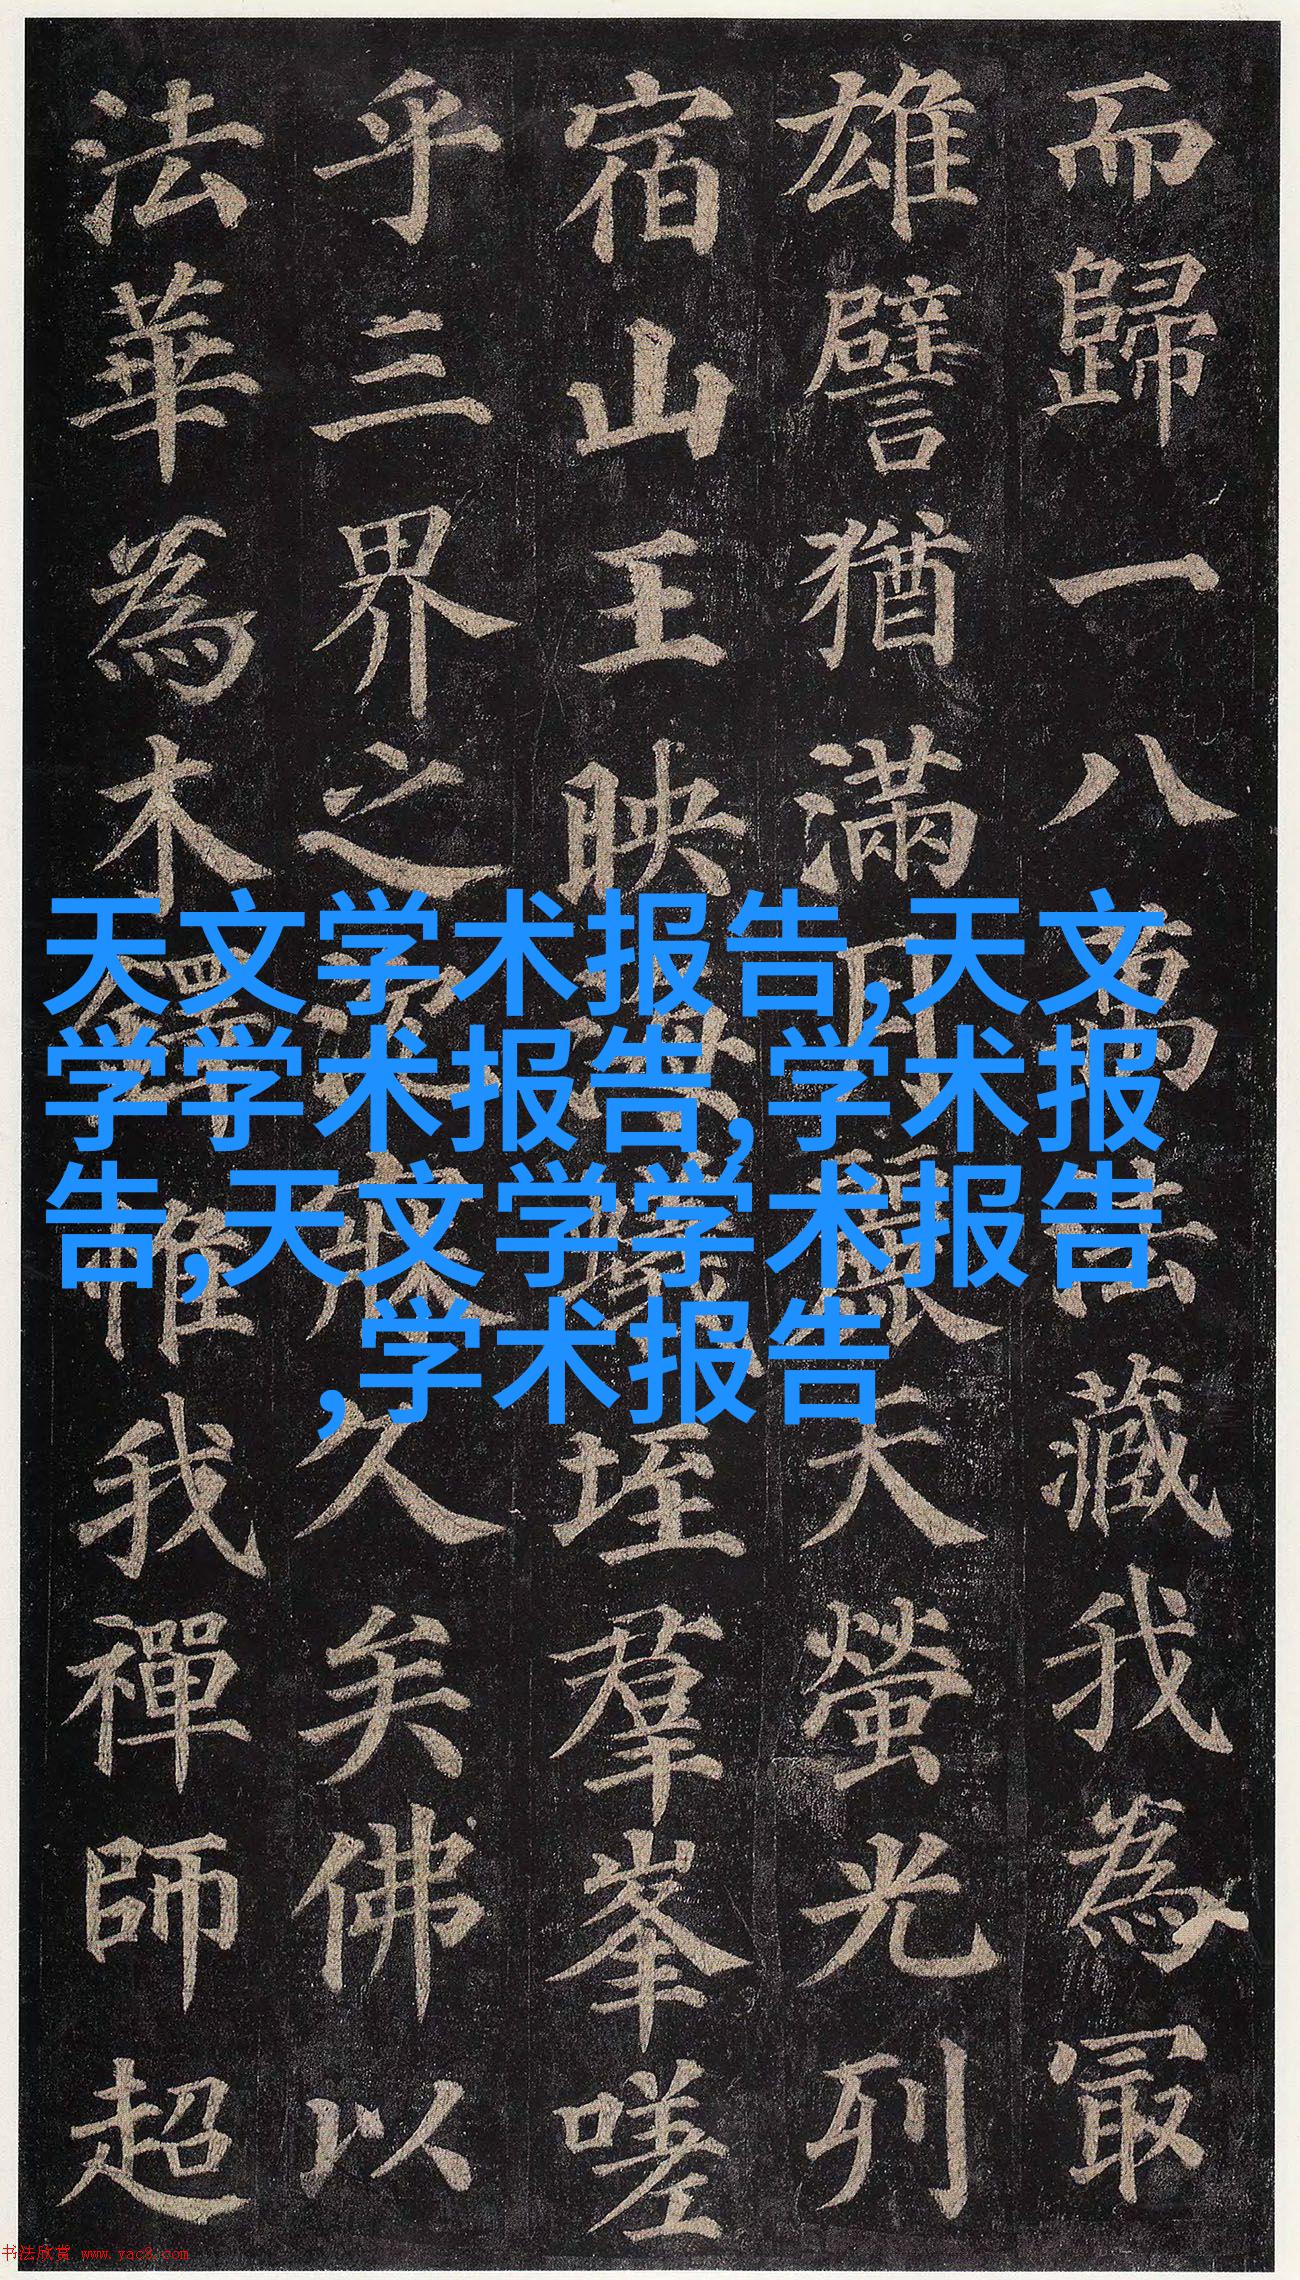 而歸一八萬法藏我為冣
雄譬猶滿月麗天螢光列
宿山王映海蟻垤羣峯嗟
乎三界之沉寐久矣佛以
法華為木鐸惟我禪師超
天文学术报告,天文
学学术报告,学术报
告,天文学学术报告
,学术报告
书法欣赏 www.yac8.com